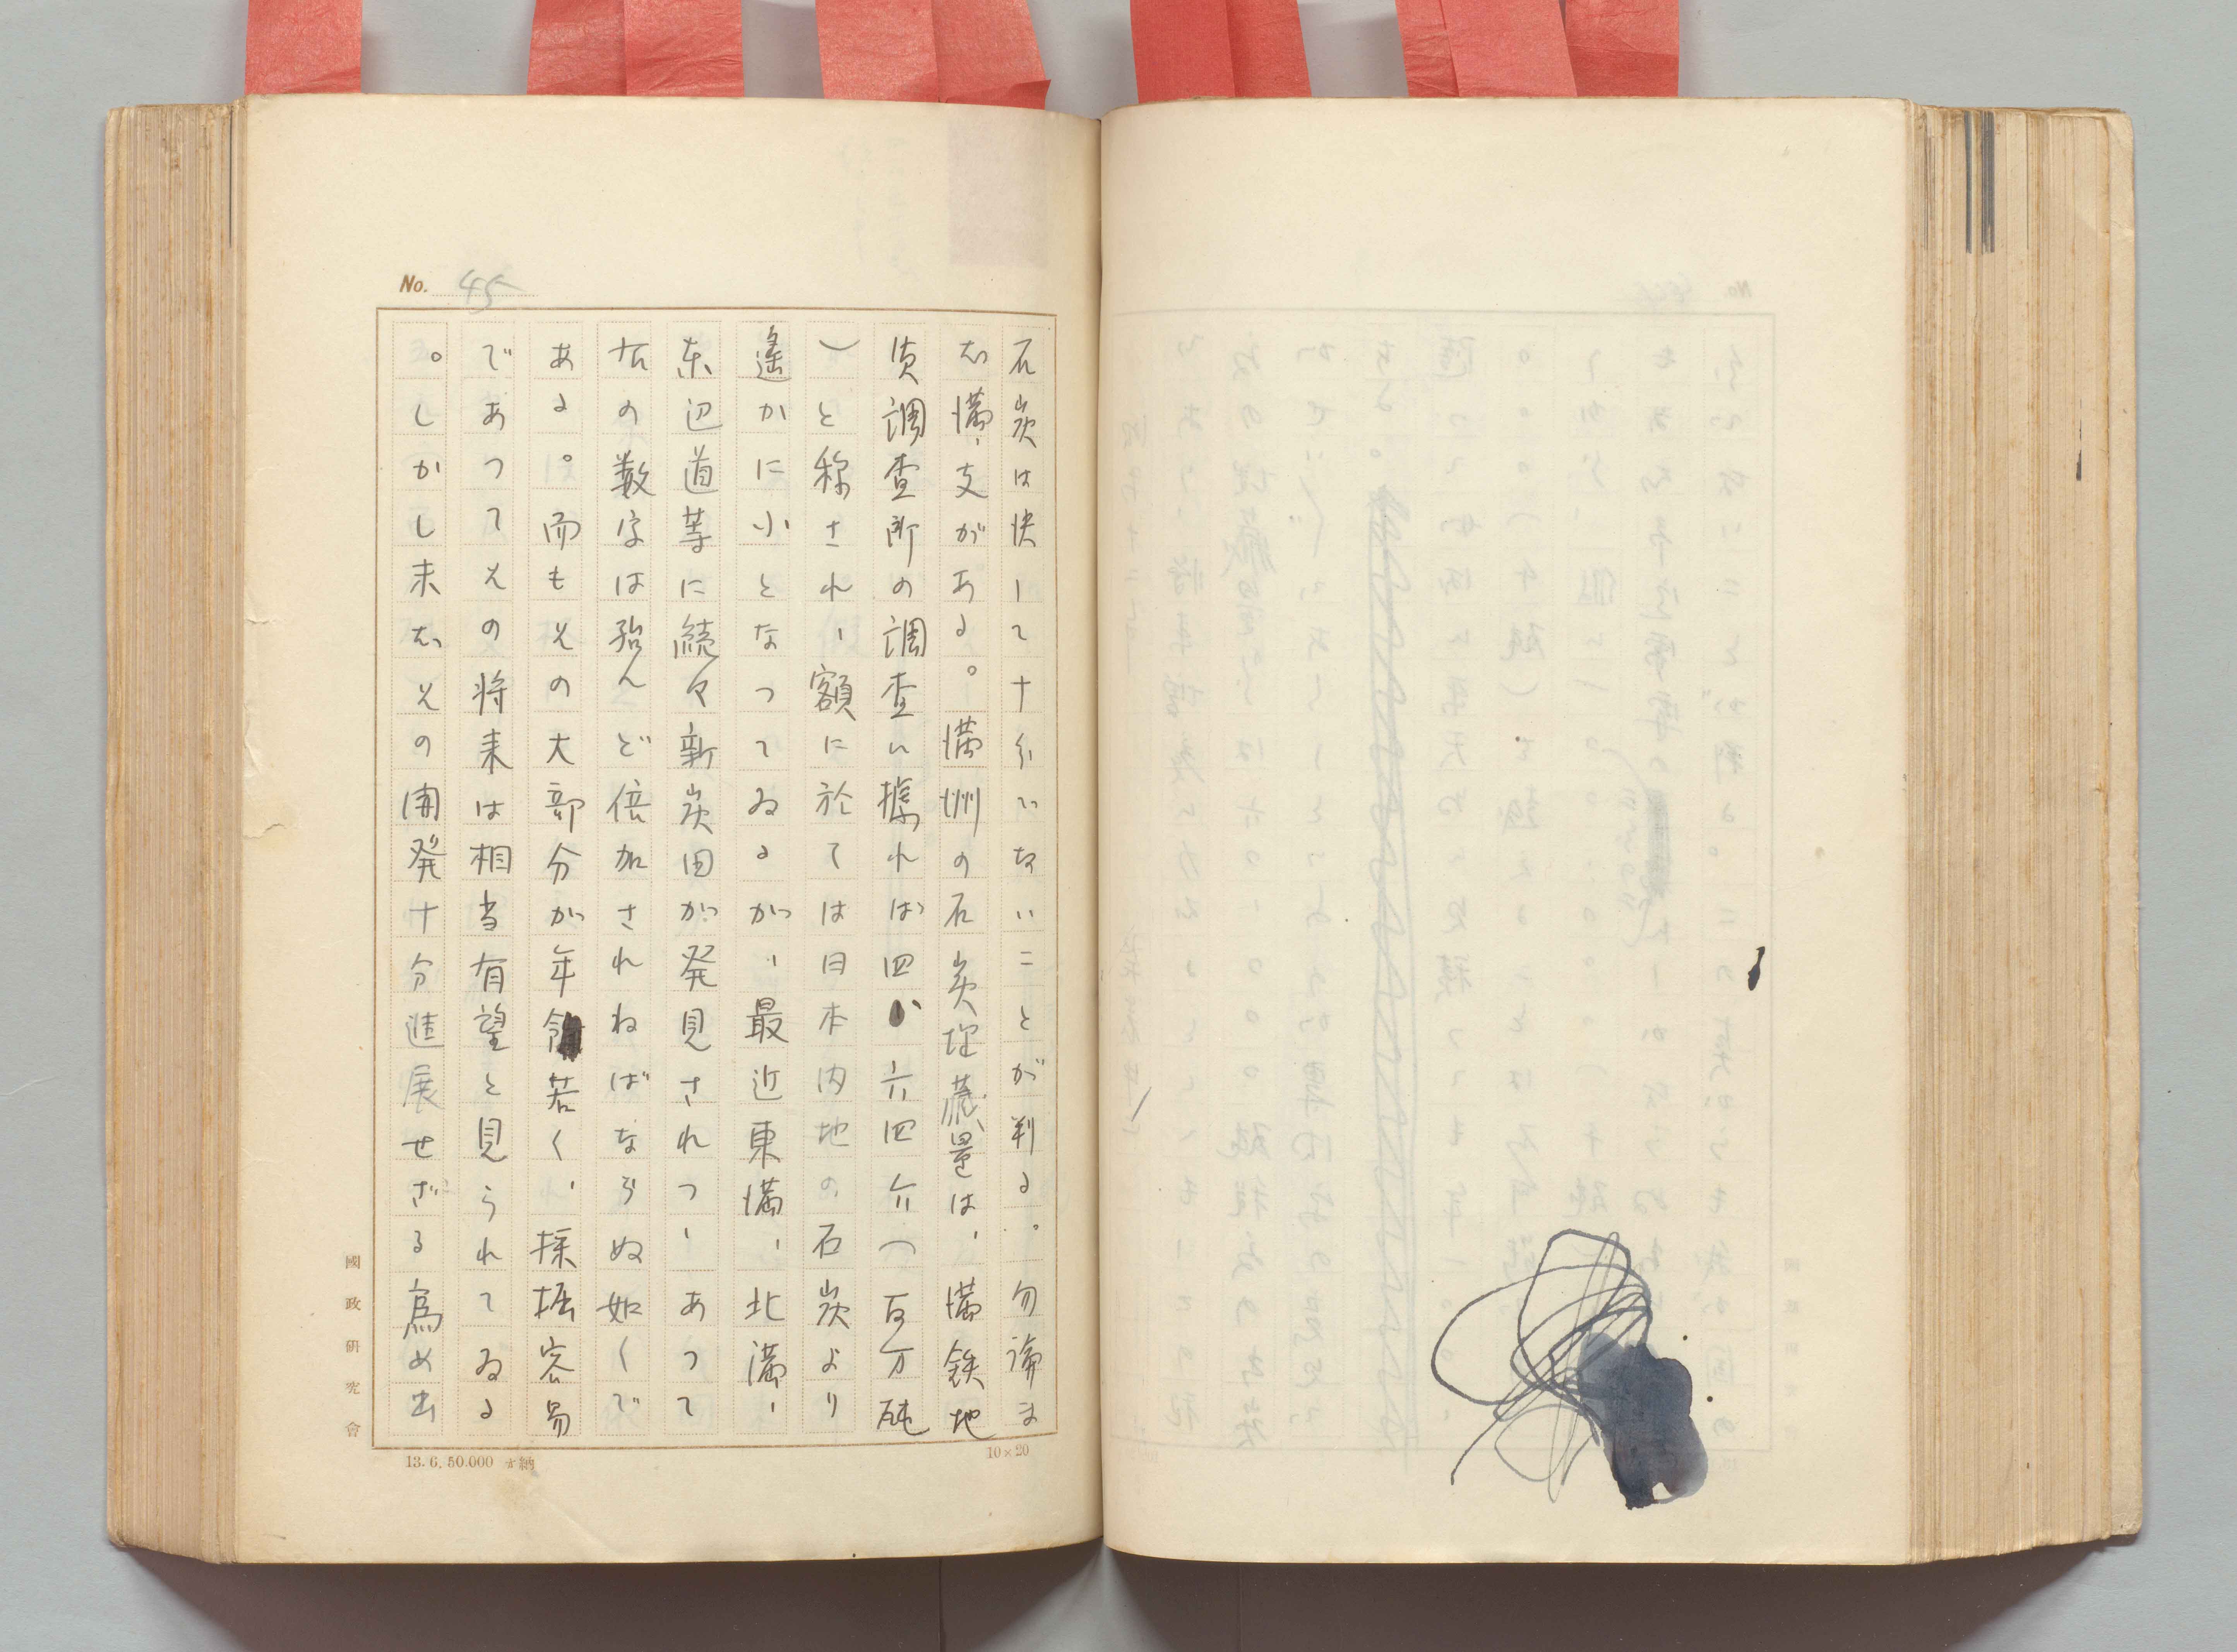 No. 45
石炭は決して十分でないことが判る。勿論ま
だ満、支がある。満洲の石炭埋蔵量は、満鉄地
質調査所の調査に拠れば四、六四六(百万砘
)と称され、額に於ては日本内地の石炭より
遙かに小となつてゐるが、最近東満、北満、
東辺道等に続々新炭田が発見されつゝあつて
右の数字は殆んど倍加されねばならぬ如くで
ある。而もその大部分が年齢若く、採掘容易
であつてその将来は相当有望と見られてゐる
。しかし未だその開発十分進展せざる為め出
國政研究會
13. 6. 50.000 納
10×20